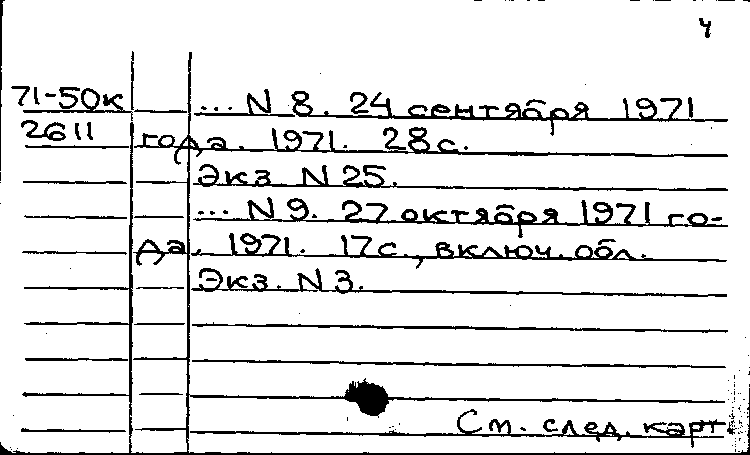 4
71-50к ... N 8. 24 сентября 1971
2611 года. 1971. 28с.
Экз. N 25.
... N 9. 27 октября 1971 го-
да. 1971. 17с., включ. обл.
Экз. N 3.
См. след. карт.